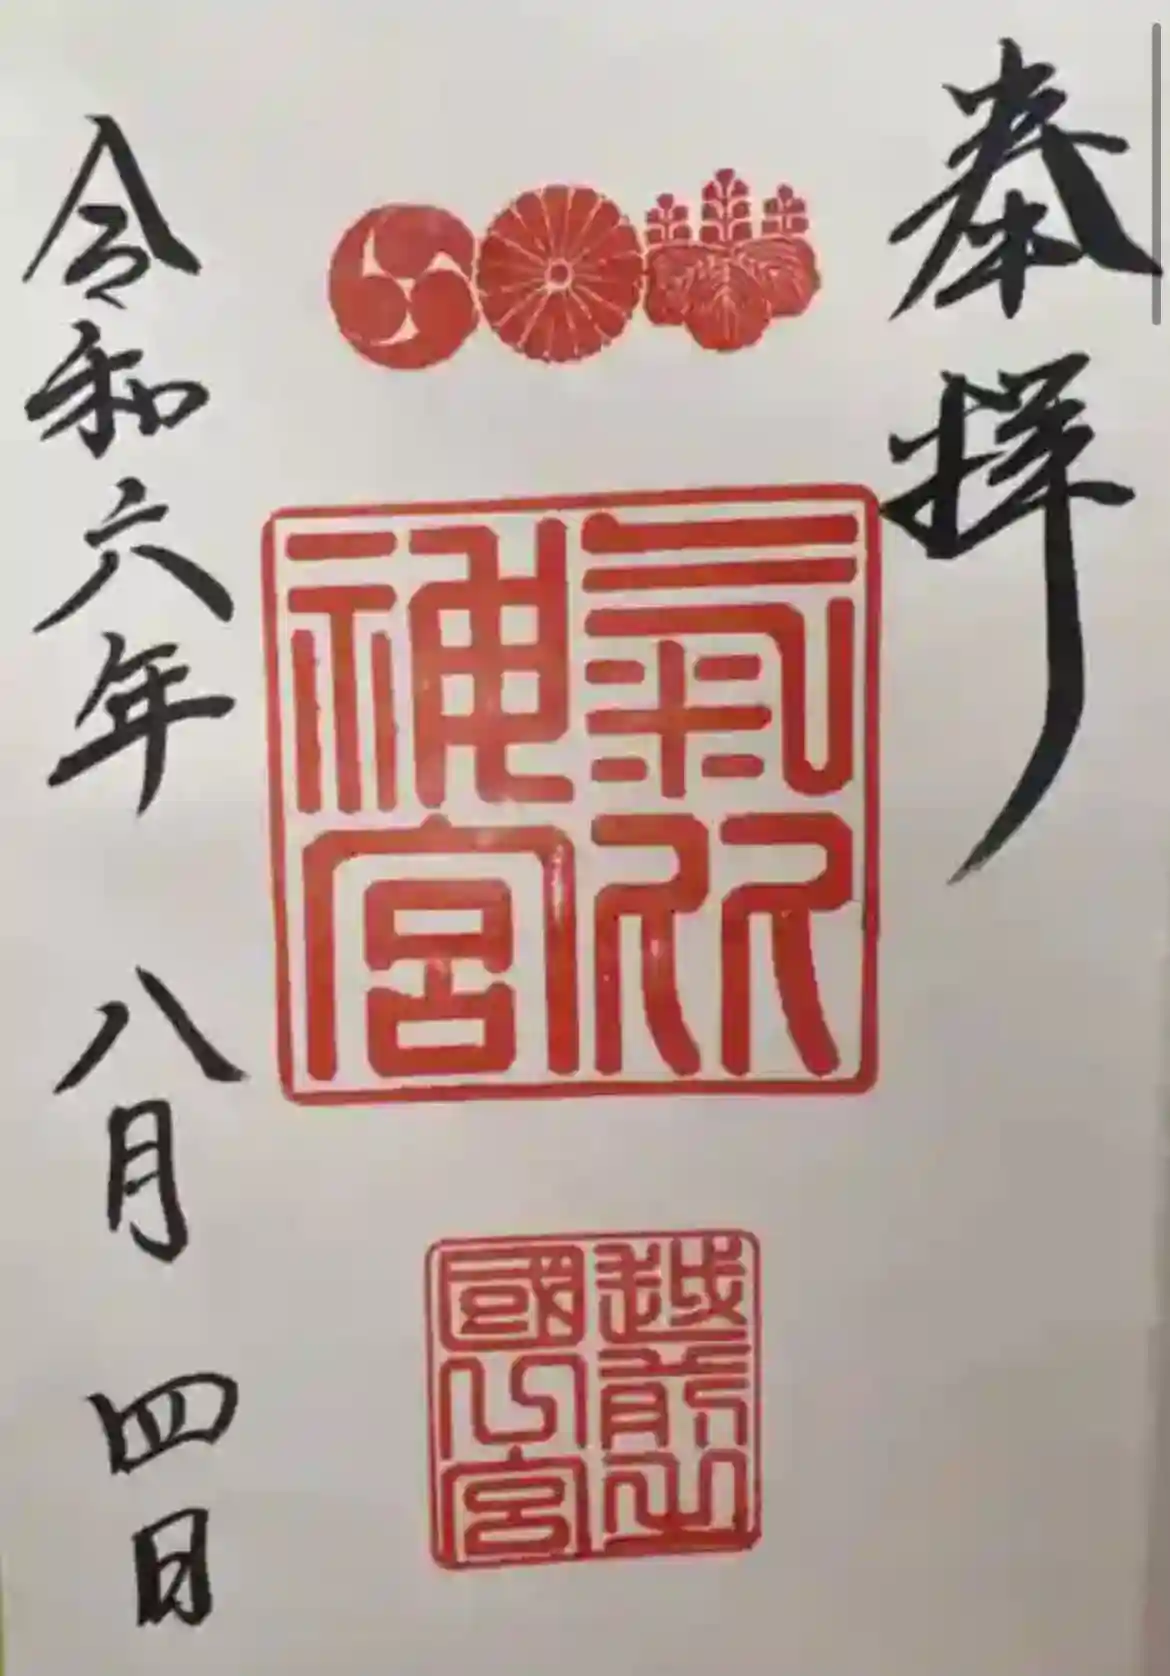 奉拝
氣比
神宮
越前
國
宮
令和六年八月四日